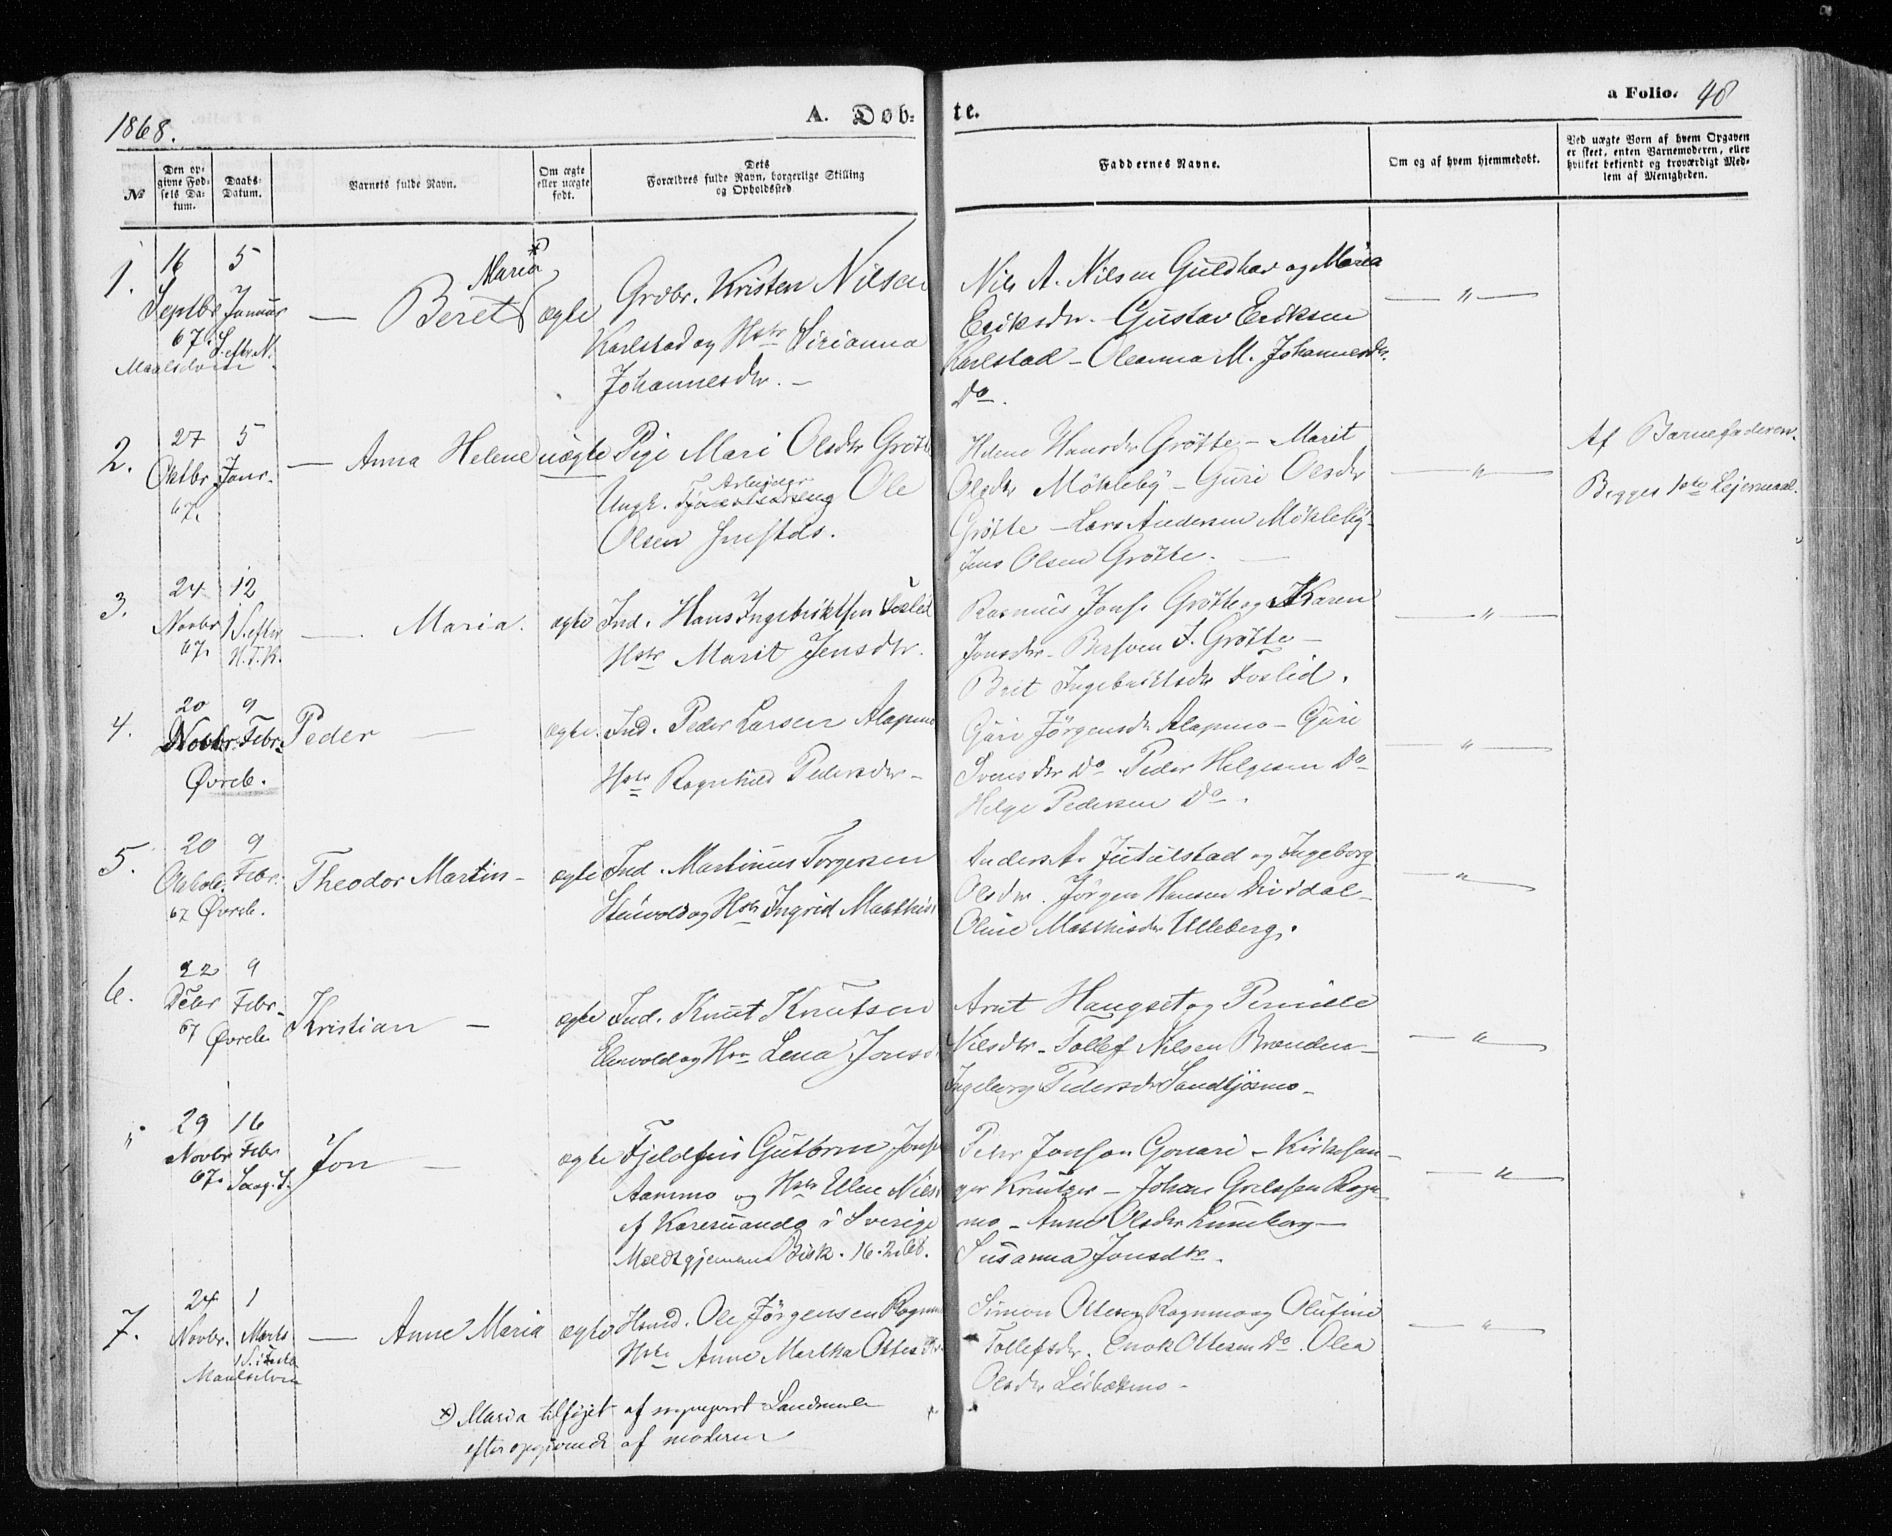 1868.
A. Døb-
te.
a Folio. 48
№
Den op-
givne Fød-
sels Da-
tum.
Daabs-
Datum.
Barnets fulde Navn.
Om ægte
eller uægte
født.
Dets
Forældres fulde Navn, borgerlige Stilling
og Opholdssted.
Faddernes Navne.
Om og af hvem hjemmedøbt.
Ved uægte Børn af hvem Opgaven
er skeet, enten Barnemoderen, eller
hvilket bekjendt og troværdigt Med-
lem af Menigheden.
1.
16
Septbr
67.
5
Januar
S. eftr N.
Maalselven
— Beret Maria *)
ægte
Grdbr. Kristen Nilsen
Karlstad og Hstr Sirianna
Johannesdtr. -
Nils A. Nilsen Guldhav og Maria
Eriksdtr. - Gustav Eriksen
Karlstad - Oleanna M. Johannesdtr.
Do.
— " —
2.
27
Oktbr
67.
5
Janr.
— Anna Helene
uægte
Pige Mari Olsdtr Grøtte
Ungk. Arbeider Ole
Olsen
Helene Hansdtr Grøtte - Marit
Olsdtr Møkleby - Guri Olsdtr
Grøtte - Lars Andersen Møkleby -
Jens Olsen Grøtte. —
— " —
Af Barnefaderen.
Begges 1ste Lejermaal.
3.
24
Novbr
67.
12
1 S. eftr
H. T. K.
— Maria.
ægte
Ind. Hans Ingebriktsen Foslid
Hstr Marit Jensdtr.
Rasmus Jons. Grøtte og Karen
Jonsdtr - Bersven J. Grøtte -
Brit Ingebriktsdtr Foslid.
— " —
4.
20
Novbr.
9
Febr.
Øvreb.
Peder —
ægte.
Ind. Peder Larsen Alapmo
Hstr Ragnhild Pedersdtr -
Guri Jørgensdtr Alapmo - Guri
Svensdtr Do Peder Helgesen Do
Helge Pedersen Do.
— " —
5.
20
Oktobr.
67
9
Febr.
Øvreb.
Theodor Martin -
ægte
Ind. Martinus Torgersen
Steinvold og Hstr Ingrid Matthisd
Anders A. Jutulstad og Ingeborg
Olsdtr. Jørgen Hansen Dividal -
Oline Matthisdtr Ulleberg.
— " —
6.
22
Debr
67
9
Febr
Øvreb.
Kristian —
ægte
Ind. Knut Knutsen
Elvevold og Hstr Lena Jonsd
Arnt Haugset og Pernille
Nilsdtr - Tollef Nilsen Brænden -
Ingeborg Pedersdtr Sandtjosmo -
— " —
"
29
Novbr
67.
16
Febr
Jon —
ægte
Fjeldfin Guttorm Jonsen
Aammo og Hstr Ellen Nilsd
af Karesuando i Sverige
16. 2
Peder Jonsen - Kirkesan-
ger Kreutzer - Johan Grelssen Rogn-
mo - Anne Olsdtr Lunneborg -
Susanna Jonsdtr.
— " —
7.
24
Novbr.
1
Marts
1 S. i Faste
Maalselven
— Anne Maria
ægte
Husmd. Ole Jørgensen Rognmo
Hstr Anne Martha Ottesdtr
Simon Ottesen Rognmo og Olufine
Tollefsdtr. Enok Ottesen Do. Olea
Olsdtr Leirbækmo -
— " —
*) Maria tilføiet af
efter opgivende af moderen